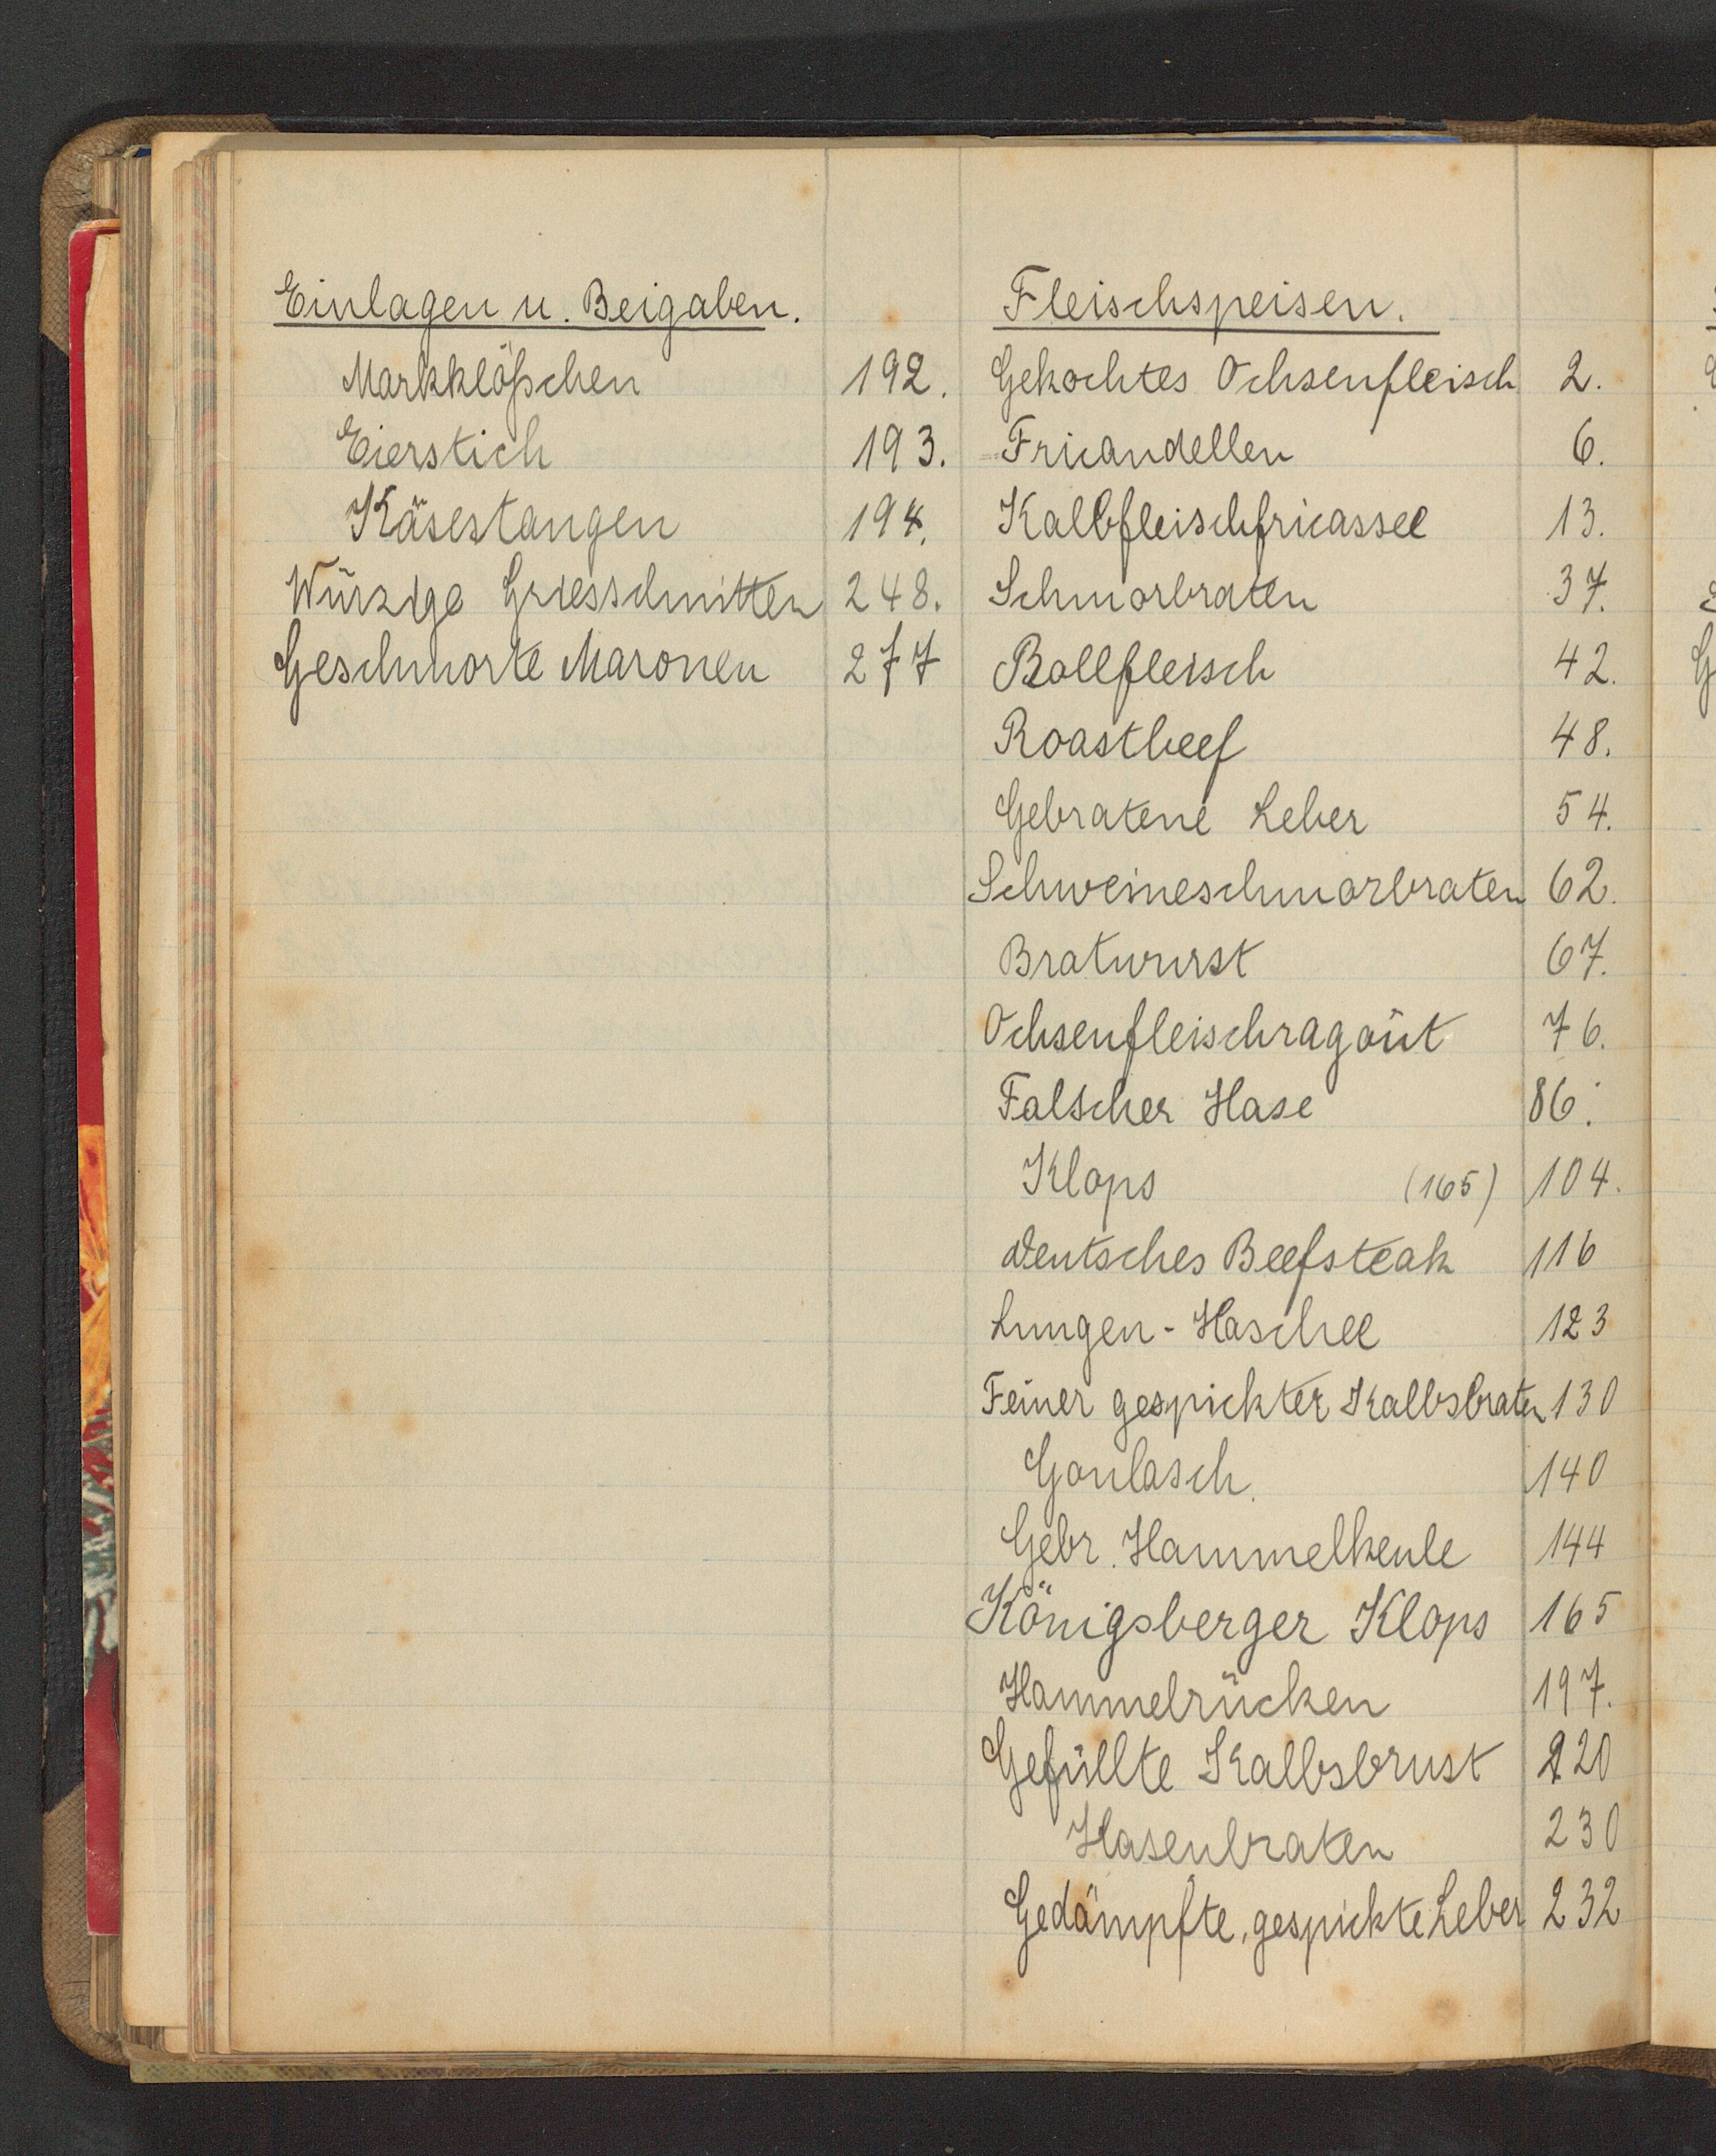 Einlagen u. Beigaben.
Markklößchen 192.
Eierstich 193.
Käsestangen 194.
Würzige Griesschnitten 248.
Geschmorte Maronen 277
Fleischspeisen.
Gekochtes Ochsenfleisch 2.
Fricandellen 6.
Kalbfleischfricassee 13.
Schmorbraten 37.
Rollfleisch 42.
Roastbeef 48.
Gebratene Leber 54.
Schweineschmorbraten 62.
Bratwurst 67.
Ochsenfleischragoût 76.
Falscher Hase 86.
Klops (165) 104.
Deutsches Beefsteak 116
Lungen-Haschee 123
Feiner gespickter Kalbsbraten 130
Goulasch. 140
Gebr. Hammelkeule 144
Königsberger Klops 165
Hammelrücken 197.
Gefüllte Kalbsbrust 220
Hasenbraten 230
Gedämpfte, gespickte Leber 232